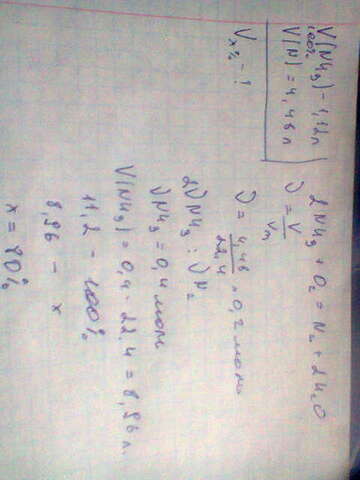 V(NH₃) - 1,12л
100%
V(N) = 4,48 л
Vx% - ?
2NH₃ + O₂ = N₂ + 2H₂O
ν = V/Vm
ν = 4,48/22,4 = 0,2 моль
2ν NH₃ : ν N₂
ν NH₃ = 0,4 моль
V(NH₃) = 0,4 · 22,4 = 8,96 л.
11,2 - 100%
8,96 - x
x = 80%